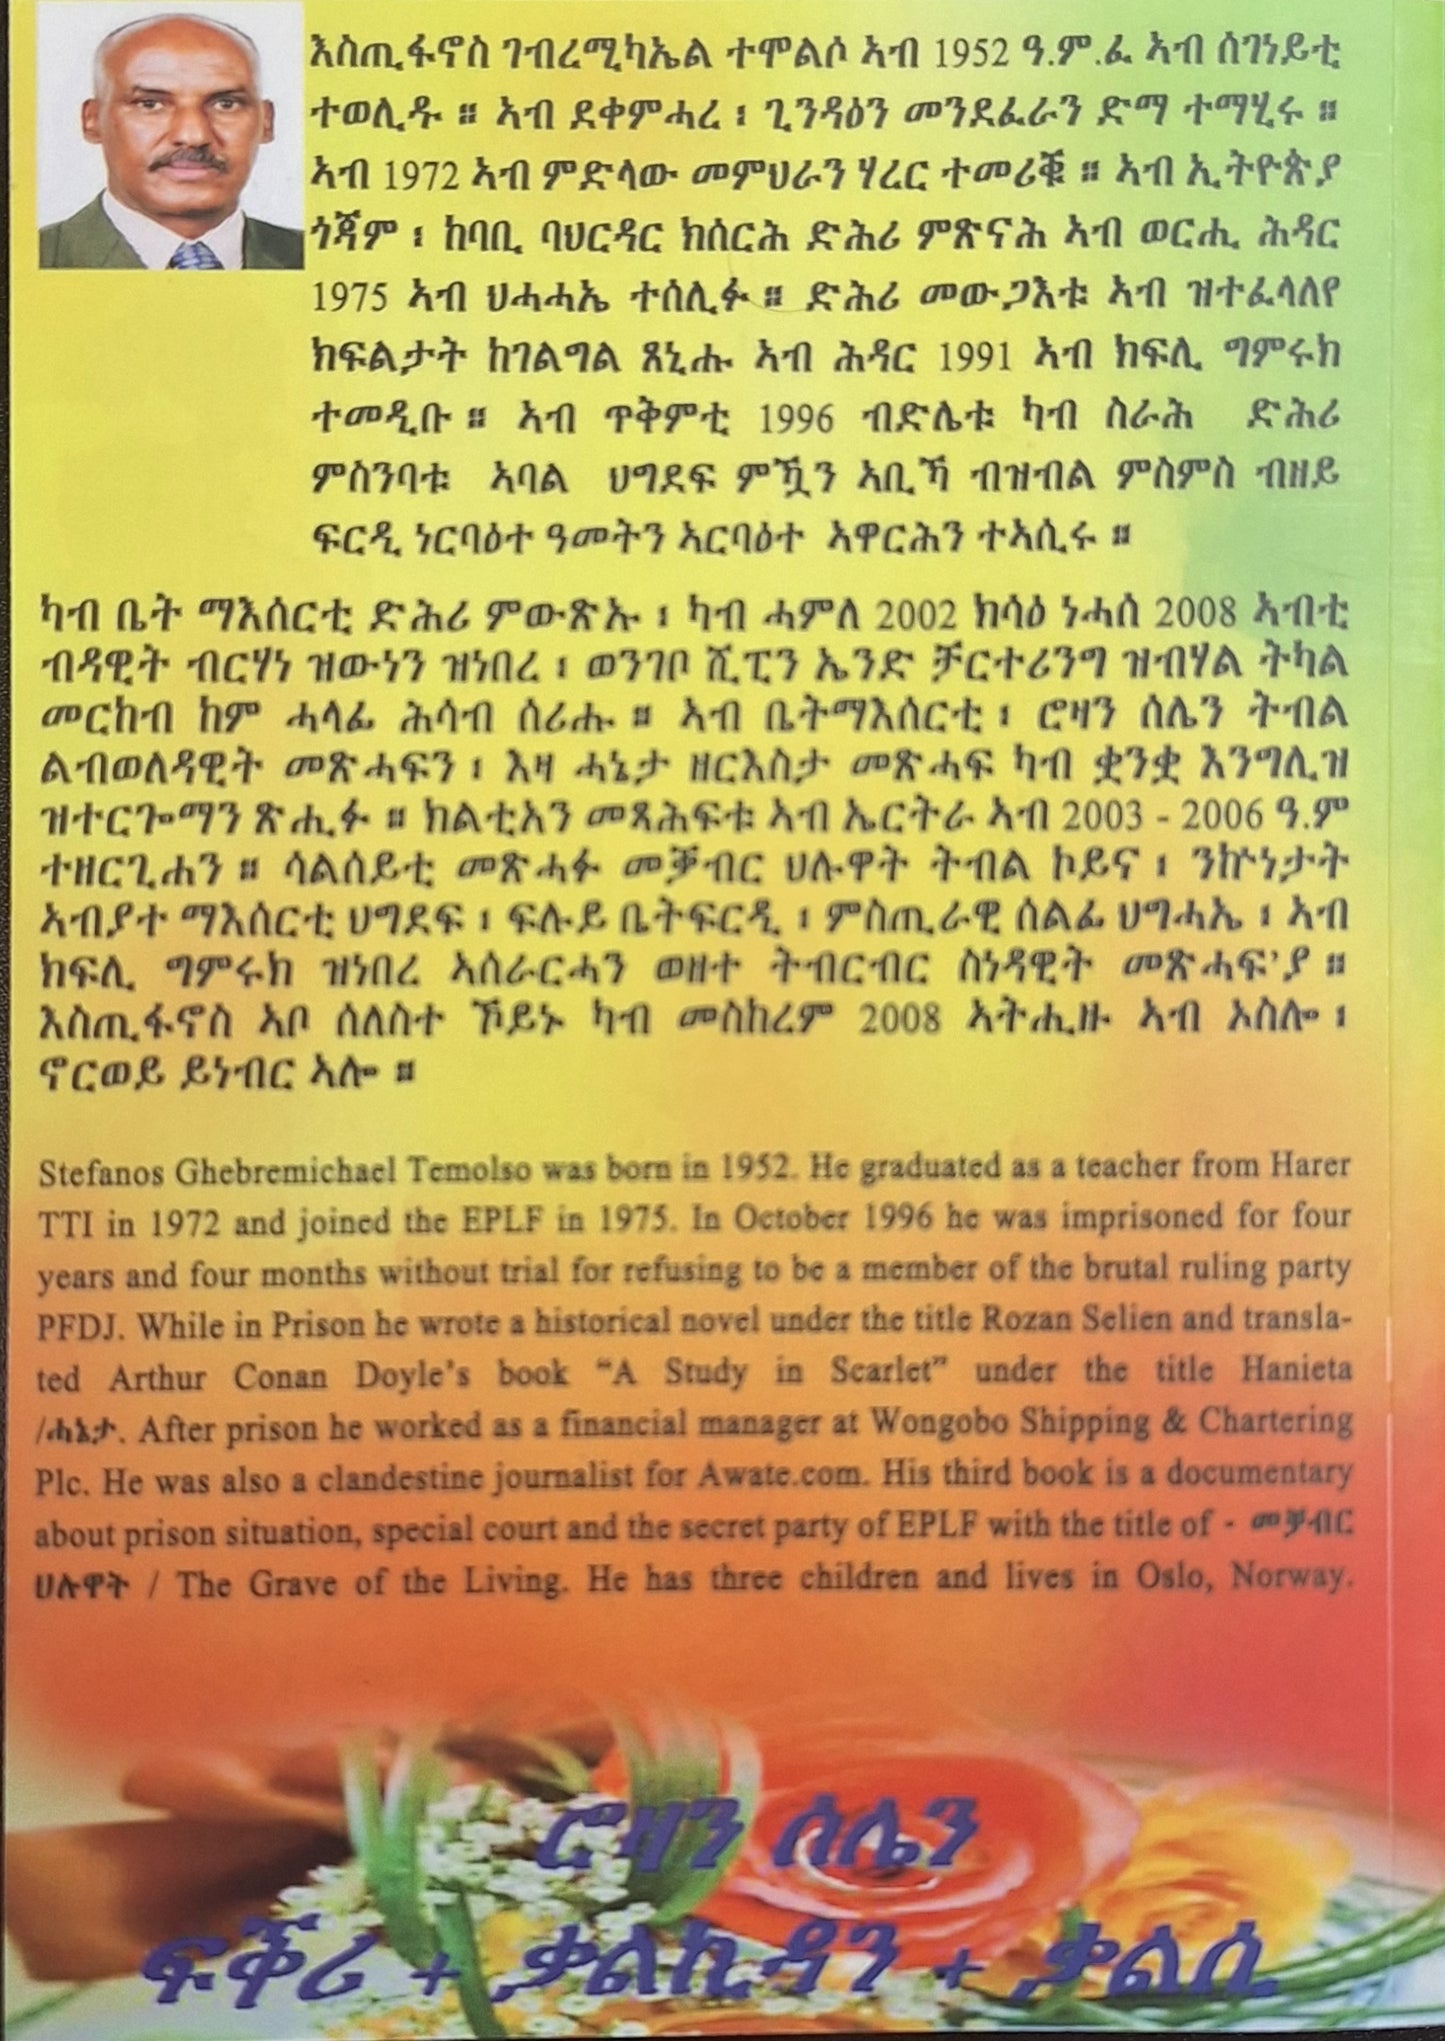 እስጢፋኖስ ገብረሚካኤል ተሞልሶ ኣብ 1952 ዓ.ም.ፈ ኣብ ሰገነይቲ
ተወሊዱ ። ኣብ ደቀምሓረ ፣ ጊንዳዕን መንደፈራን ድማ ተማሂሩ ።
ኣብ 1972 ኣብ ምድላው መምህራን ሃረር ተመሪቑ ። ኣብ ኢትዮጵያ
ጎጃም ፣ ከባቢ ባህርዳር ክሰርሕ ድሕሪ ምጽናሕ ኣብ ወርሒ ሕዳር
1975 ኣብ ህሓሓኤ ተሰሊፉ ። ድሕሪ መውጋእቱ ኣብ ዝተፈላለየ
ክፍልታት ከገልግል ጸኒሑ ኣብ ሕዳር 1991 ኣብ ክፍሊ ግምሩክ
ተመዲቡ ። ኣብ ጥቅምቲ 1996 ብድሌቱ ካብ ስራሕ ድሕሪ
ምስንባቱ ኣባል ህግደፍ ምዃን ኣቢኻ ብዝብል ምስምስ ብዘይ
ፍርዲ ነርባዕተ ዓመትን ኣርባዕተ ኣዋርሕን ተኣሲሩ ።
ካብ ቤት ማእሰርቲ ድሕሪ ምውጽኡ ፣ ካብ ሓምለ 2002 ክሳዕ ነሓሰ 2008 ኣብቲ
ብዳዊት ብርሃነ ዝውነን ዝነበረ ፣ ወንገቦ ሺፒን ኤንድ ቻርተሪንግ ዝብሃል ትካል
መርከብ ከም ሓላፊ ሕሳብ ሰሪሑ ። ኣብ ቤትማእሰርቲ ፣ ሮዛን ሰሌን ትብል
ልብወለዳዊት መጽሓፍን ፣ እዛ ሓኔታ ዘርእስታ መጽሓፍ ካብ ቋንቋ እንግሊዝ
ዝተርጐማን ጽሒፉ ። ክልቲአን መጻሕፍቱ ኣብ ኤርትራ ኣብ 2003 - 2006 ዓ.ም
ተዘርጊሐን ። ሳልሰይቲ መጽሓፉ መቓብር ህሉዋት ትብል ኮይና ፣ ንኵነታት
ኣብያተ ማእሰርቲ ህግደፍ ፣ ፍሉይ ቤትፍርዲ ፣ ምስጢራዊ ሰልፊ ህግሓኤ ፣ ኣብ
ክፍሊ ግምሩክ ዝነበረ ኣሰራርሓን ወዘተ ትብርብር ስነዳዊት መጽሓፍ'ያ ።
እስጢፋኖስ ኣቦ ሰለስተ ኾይኑ ካብ መስከረም 2008 ኣትሒዙ ኣብ ኦስሎ ፣
ኖርወይ ይነብር ኣሎ ።
Stefanos Ghebremichael Temolso was born in 1952. He graduated as a teacher from Harer
TTI in 1972 and joined the EPLF in 1975. In October 1996 he was imprisoned for four
years and four months without trial for refusing to be a member of the brutal ruling party
PFDJ. While in Prison he wrote a historical novel under the title Rozan Selien and transla-
ted Arthur Conan Doyle's book “A Study in Scarlet” under the title Hanieta
/ሓኔታ. After prison he worked as a financial manager at Wongobo Shipping & Chartering
Plc. He was also a clandestine journalist for Awate.com. His third book is a documentary
about prison situation, special court and the secret party of EPLF with the title of - መቓብር
ህሉዋት / The Grave of the Living. He has three children and lives in Oslo, Norway.
ሮዛን ሰሌን
ፍቕሪ + ቃልኪዳን + ቃልሲ